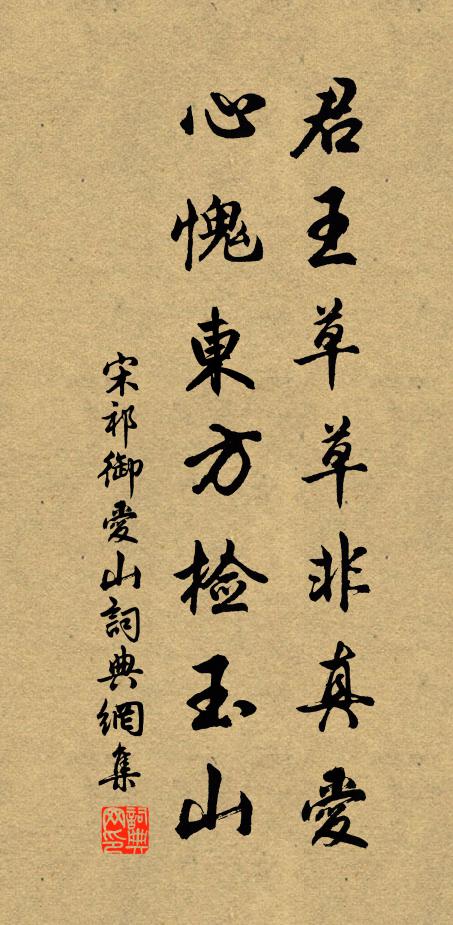 君王草草非真愛
心愧東方檢玉山
宋祁御愛山詞典網集
詞典网印